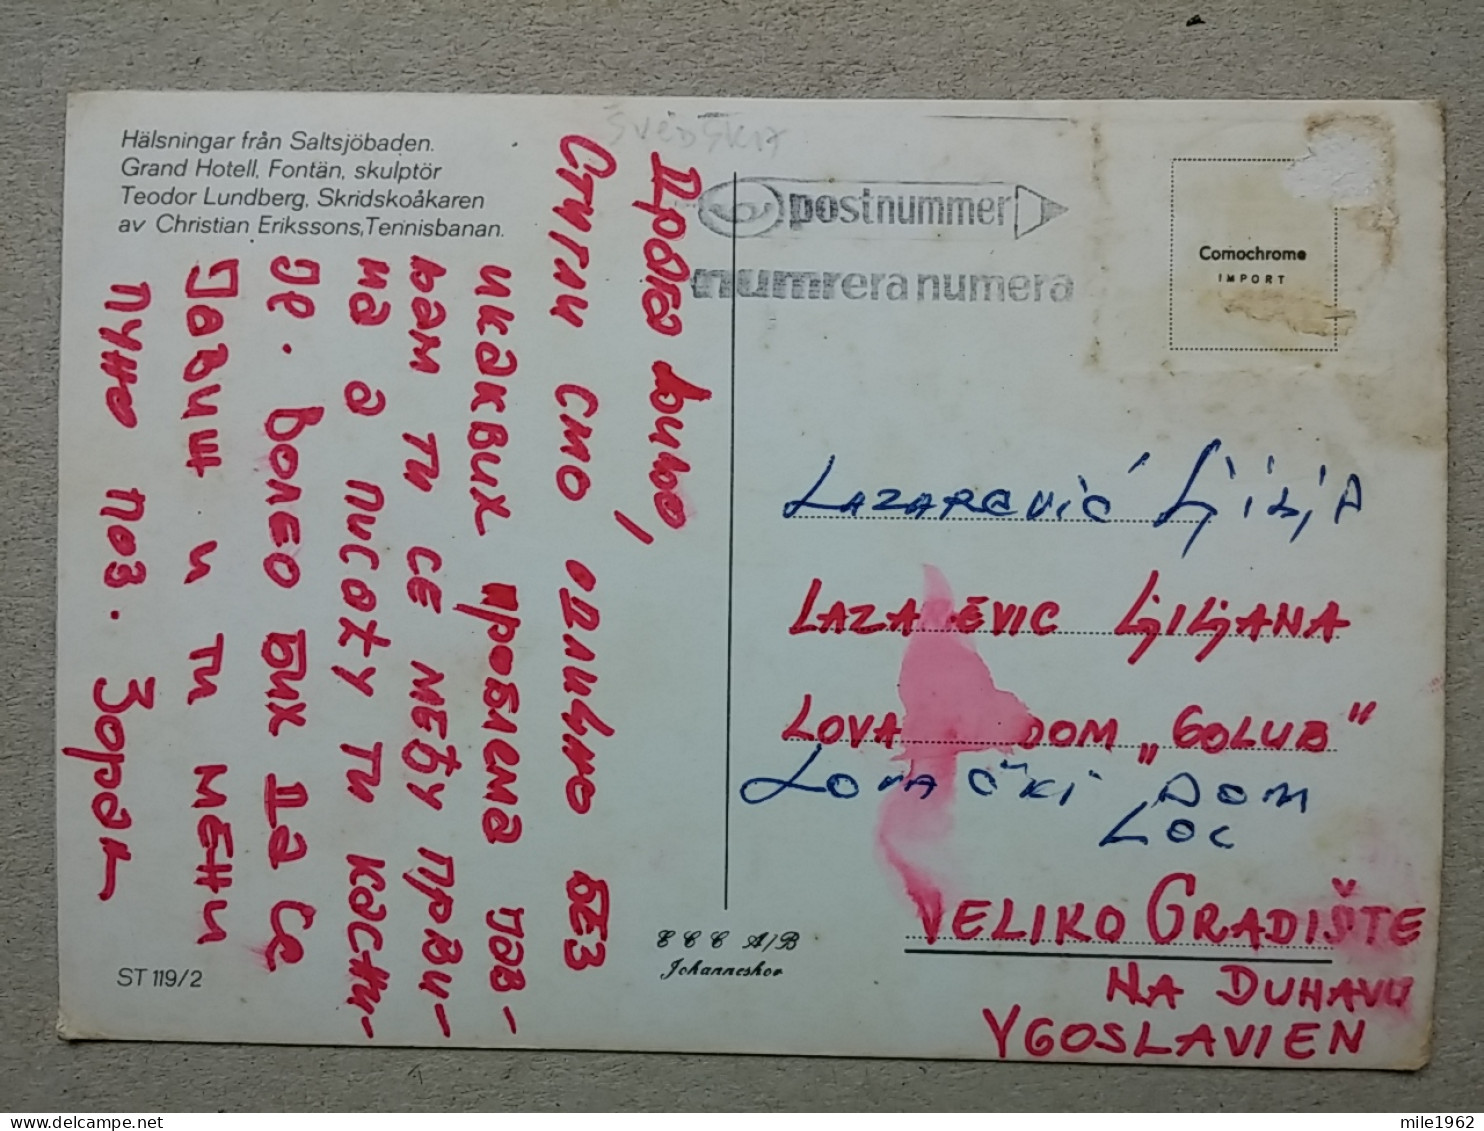 Hälsningar från Saltsjöbaden.
Grand Hotell, Fontän, skulptör
Teodor Lundberg, Skridskoåkaren
av Christian Erikssons, Tennisbanan.
ŠVEDSKA
postnummer
numrera numera
Comochrome
IMPORT
Драга Љиљо,
Стигли смо одлично БЕЗ
икаквих проблема Јав-
љам ти се међу први-
ма а писаћу ти касни-
је. Волео Бих Да се
Јавиш и ти мени
пуно поз. Зоран
LAZAREVIĆ LJILJA
LAZA EVIC LJILJANA
LOVA DOM „GOLUB"
LOVAČKI DOM
LOC
VELIKO GRADIŠTE
NA DUNAVU
YGOSLAVIEN
C C C A/B
Johanneshov
ST 119/2
mile1962